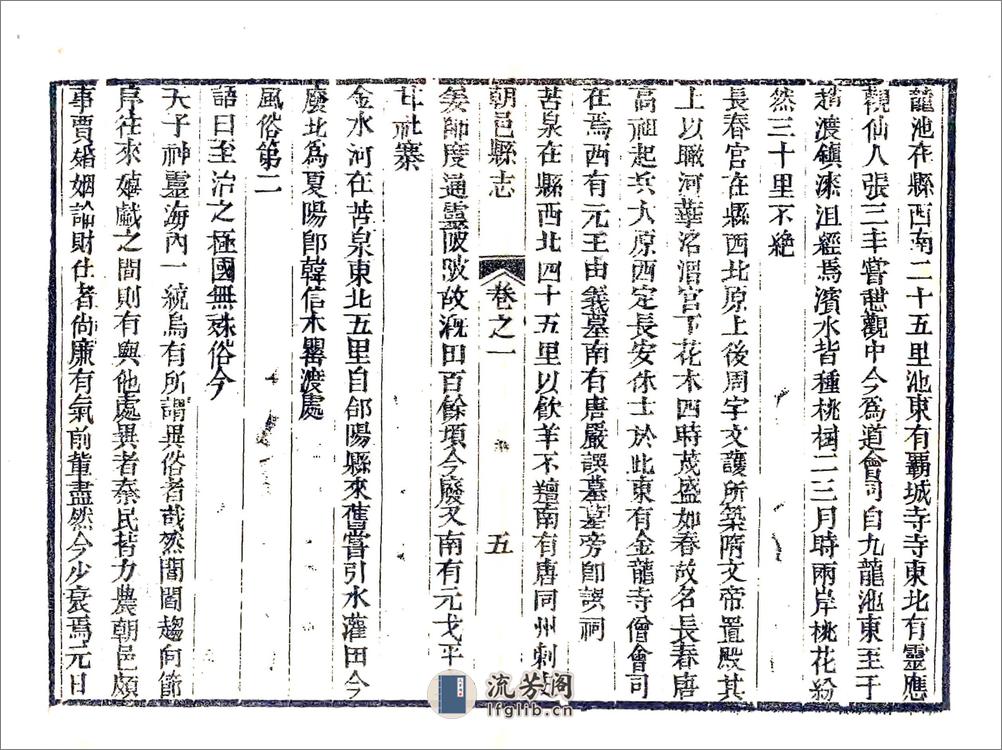 龍池在縣西南二十五里池東有覇城寺寺東北有靈應
觀仙人張三丰嘗憇觀中今爲道會司自九龍池東至于
趙渡鎮漆沮經焉濱水皆種桃樹二三月時兩岸桃花紛
然三十里不絶
長春宮在縣西北原上後周宇文護所築隋文帝置殿其
上以瞰河華洺渭宮下花木四時茂盛如春故名長春唐
高祖起兵太原西定長安休士於此東有金龍寺僧會司
在焉西有元王由義墓南有唐嚴譔墓墓旁卽譔祠
苦泉在縣西北四十五里以飲羊不羶南有唐同州刺史
朝邑縣志
卷之一
五
姜師度通靈陂陂故漑田百餘頃今廢又南有元戈平
甘社寨
金水河在苦泉東北五里自郃陽縣來舊嘗引水灌田今
廢北爲夏陽卽韓信木罌渡處
風俗第二
語曰至治之極國無殊俗今
天子神靈海內一統烏有所謂異俗者哉然閭閻趨向節
序往來嬉戲之間則有與他處異者秦民皆力農朝邑頗
事賈婚姻論財仕者尚廉有氣前輩盡然今少衰焉元日
流芳阁
lfglib.cn